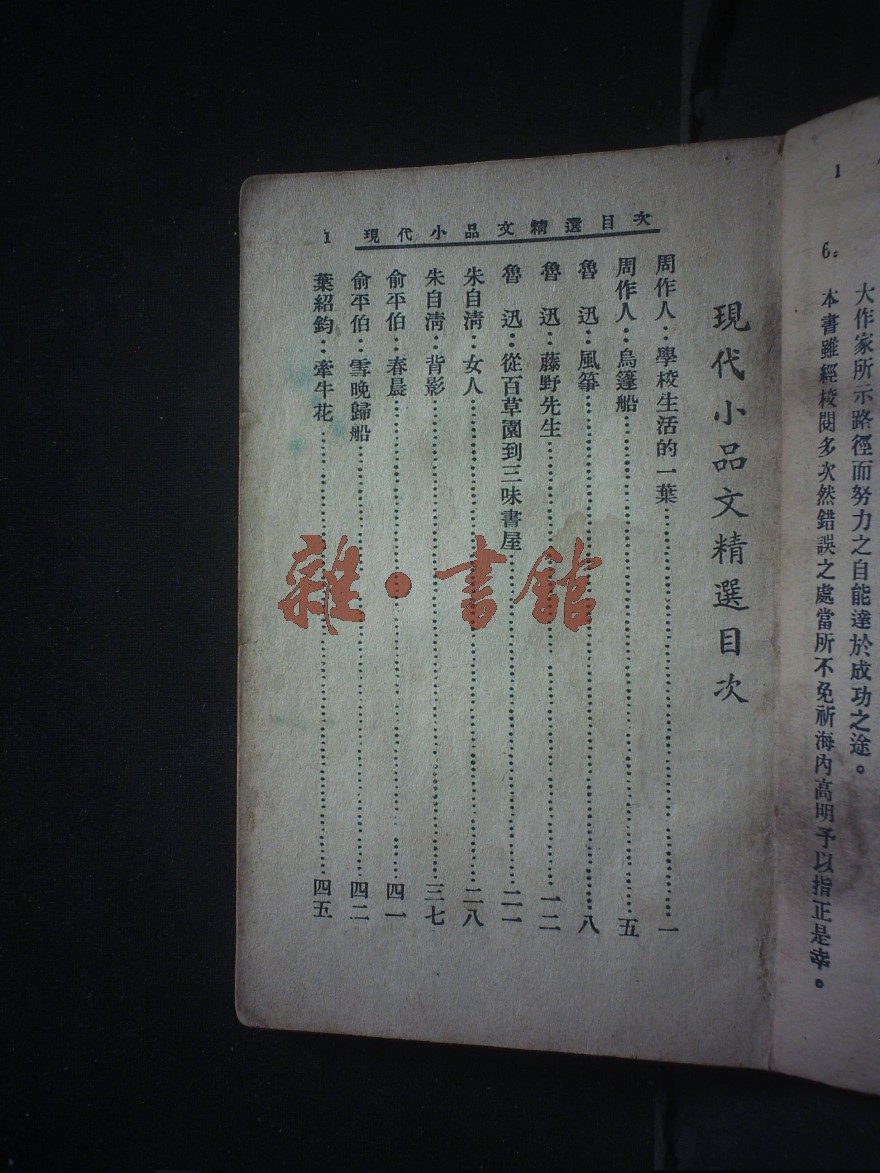 1
大作家所示路徑而努力之自能達於成功之途。
6。本書雖經校閱多次然錯誤之處當所不免祈海內高明予以指正是幸。
1 現代小品文精選目次
現代小品文精選目次
周作人：學校生活的一葉……一
周作人：烏篷船……五
魯 迅：風箏……八
魯 迅：藤野先生……一二
魯 迅：從百草園到三味書屋……二一
朱自淸：女人……二八
朱自淸：背影……三七
俞平伯：春晨……四一
俞平伯：雪晚歸船……四二
葉紹鈞：牽牛花……四五
雜·書館